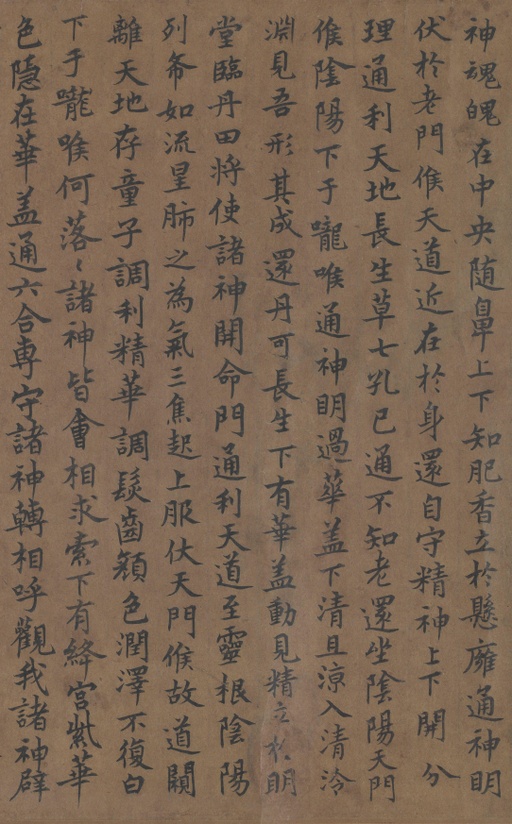 神魂魄在中央随鼻上下知肥香立於懸廱通神明
伏於老門候天道近在於身還自守精神上下開分
理通利天地長生草七孔已通不知老還坐陰陽天門
候陰陽下于嚨喉通神明過華盖下清且涼入清泠
渊見吾形其成還丹可長生下有華盖動見精立於明
堂臨丹田将使諸神開命門通利天道至靈根陰陽
列布如流星肺之為氣三焦起上服伏天門候故道闚
離天地存童子調利精華調髮齒顔色潤澤不復白
下于嚨喉何落〻諸神皆會相求索下有絳宫紫華
色隱在華盖通六合専守諸神轉相呼觀我諸神辟